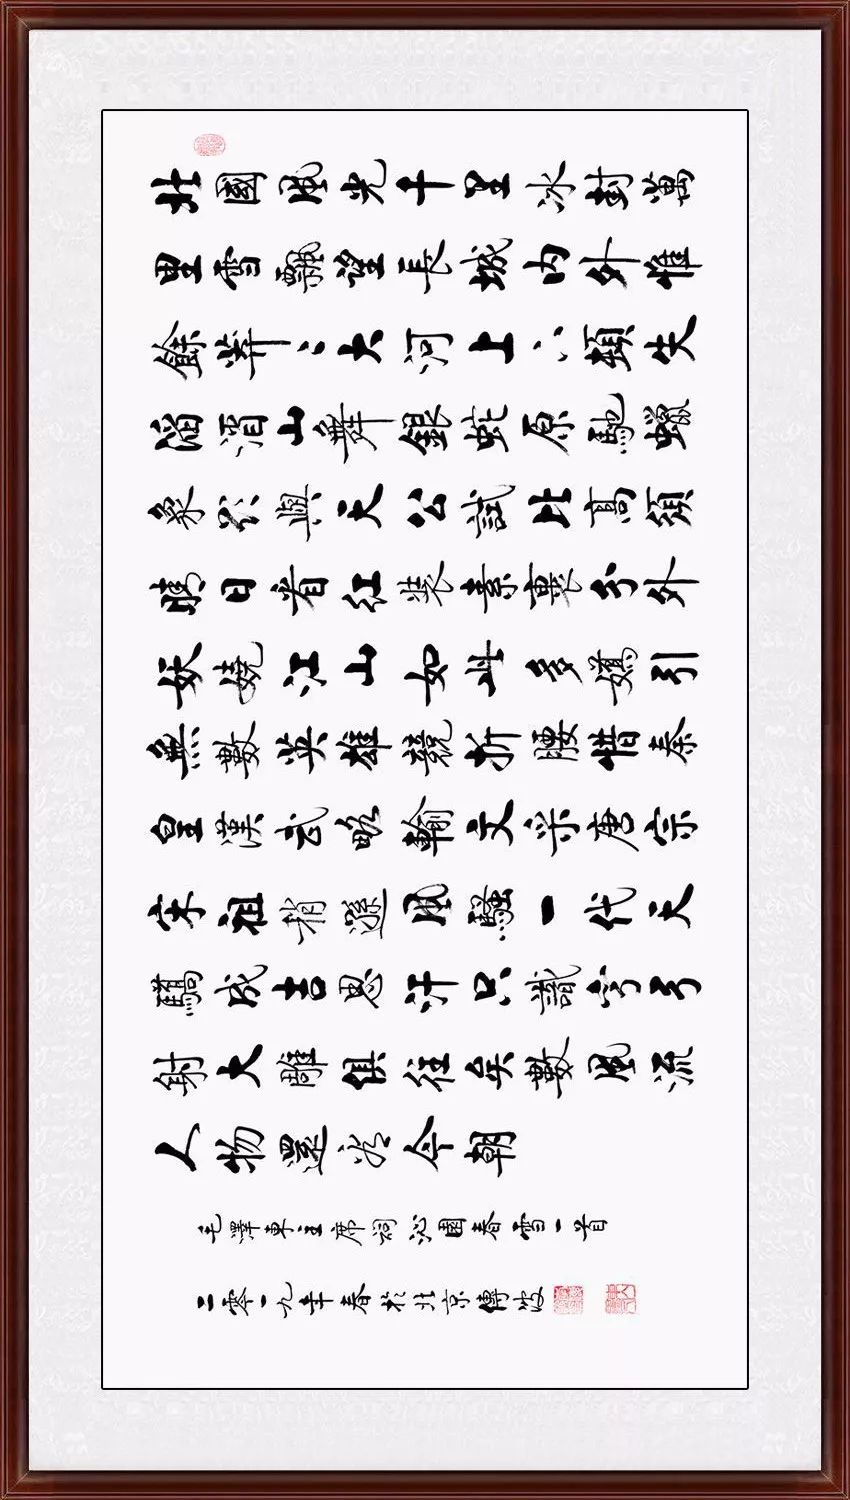 北國風光千里冰封萬
里雪飄望長城内外惟
餘莽〻大河上下頓失
滔滔山舞銀蛇原馳蠟
象欲與天公試比高須
晴日看紅裝素裹分外
妖嬈江山如此多嬌引
無數英雄競折腰惜秦
皇漢武略輸文采唐宗
宋祖稍遜風騷一代天
驕成吉思汗只識彎弓
射大雕俱往矣數風流
人物還看今朝
毛澤東主席詞沁園春雪一首
二零一九年春於北京傅波